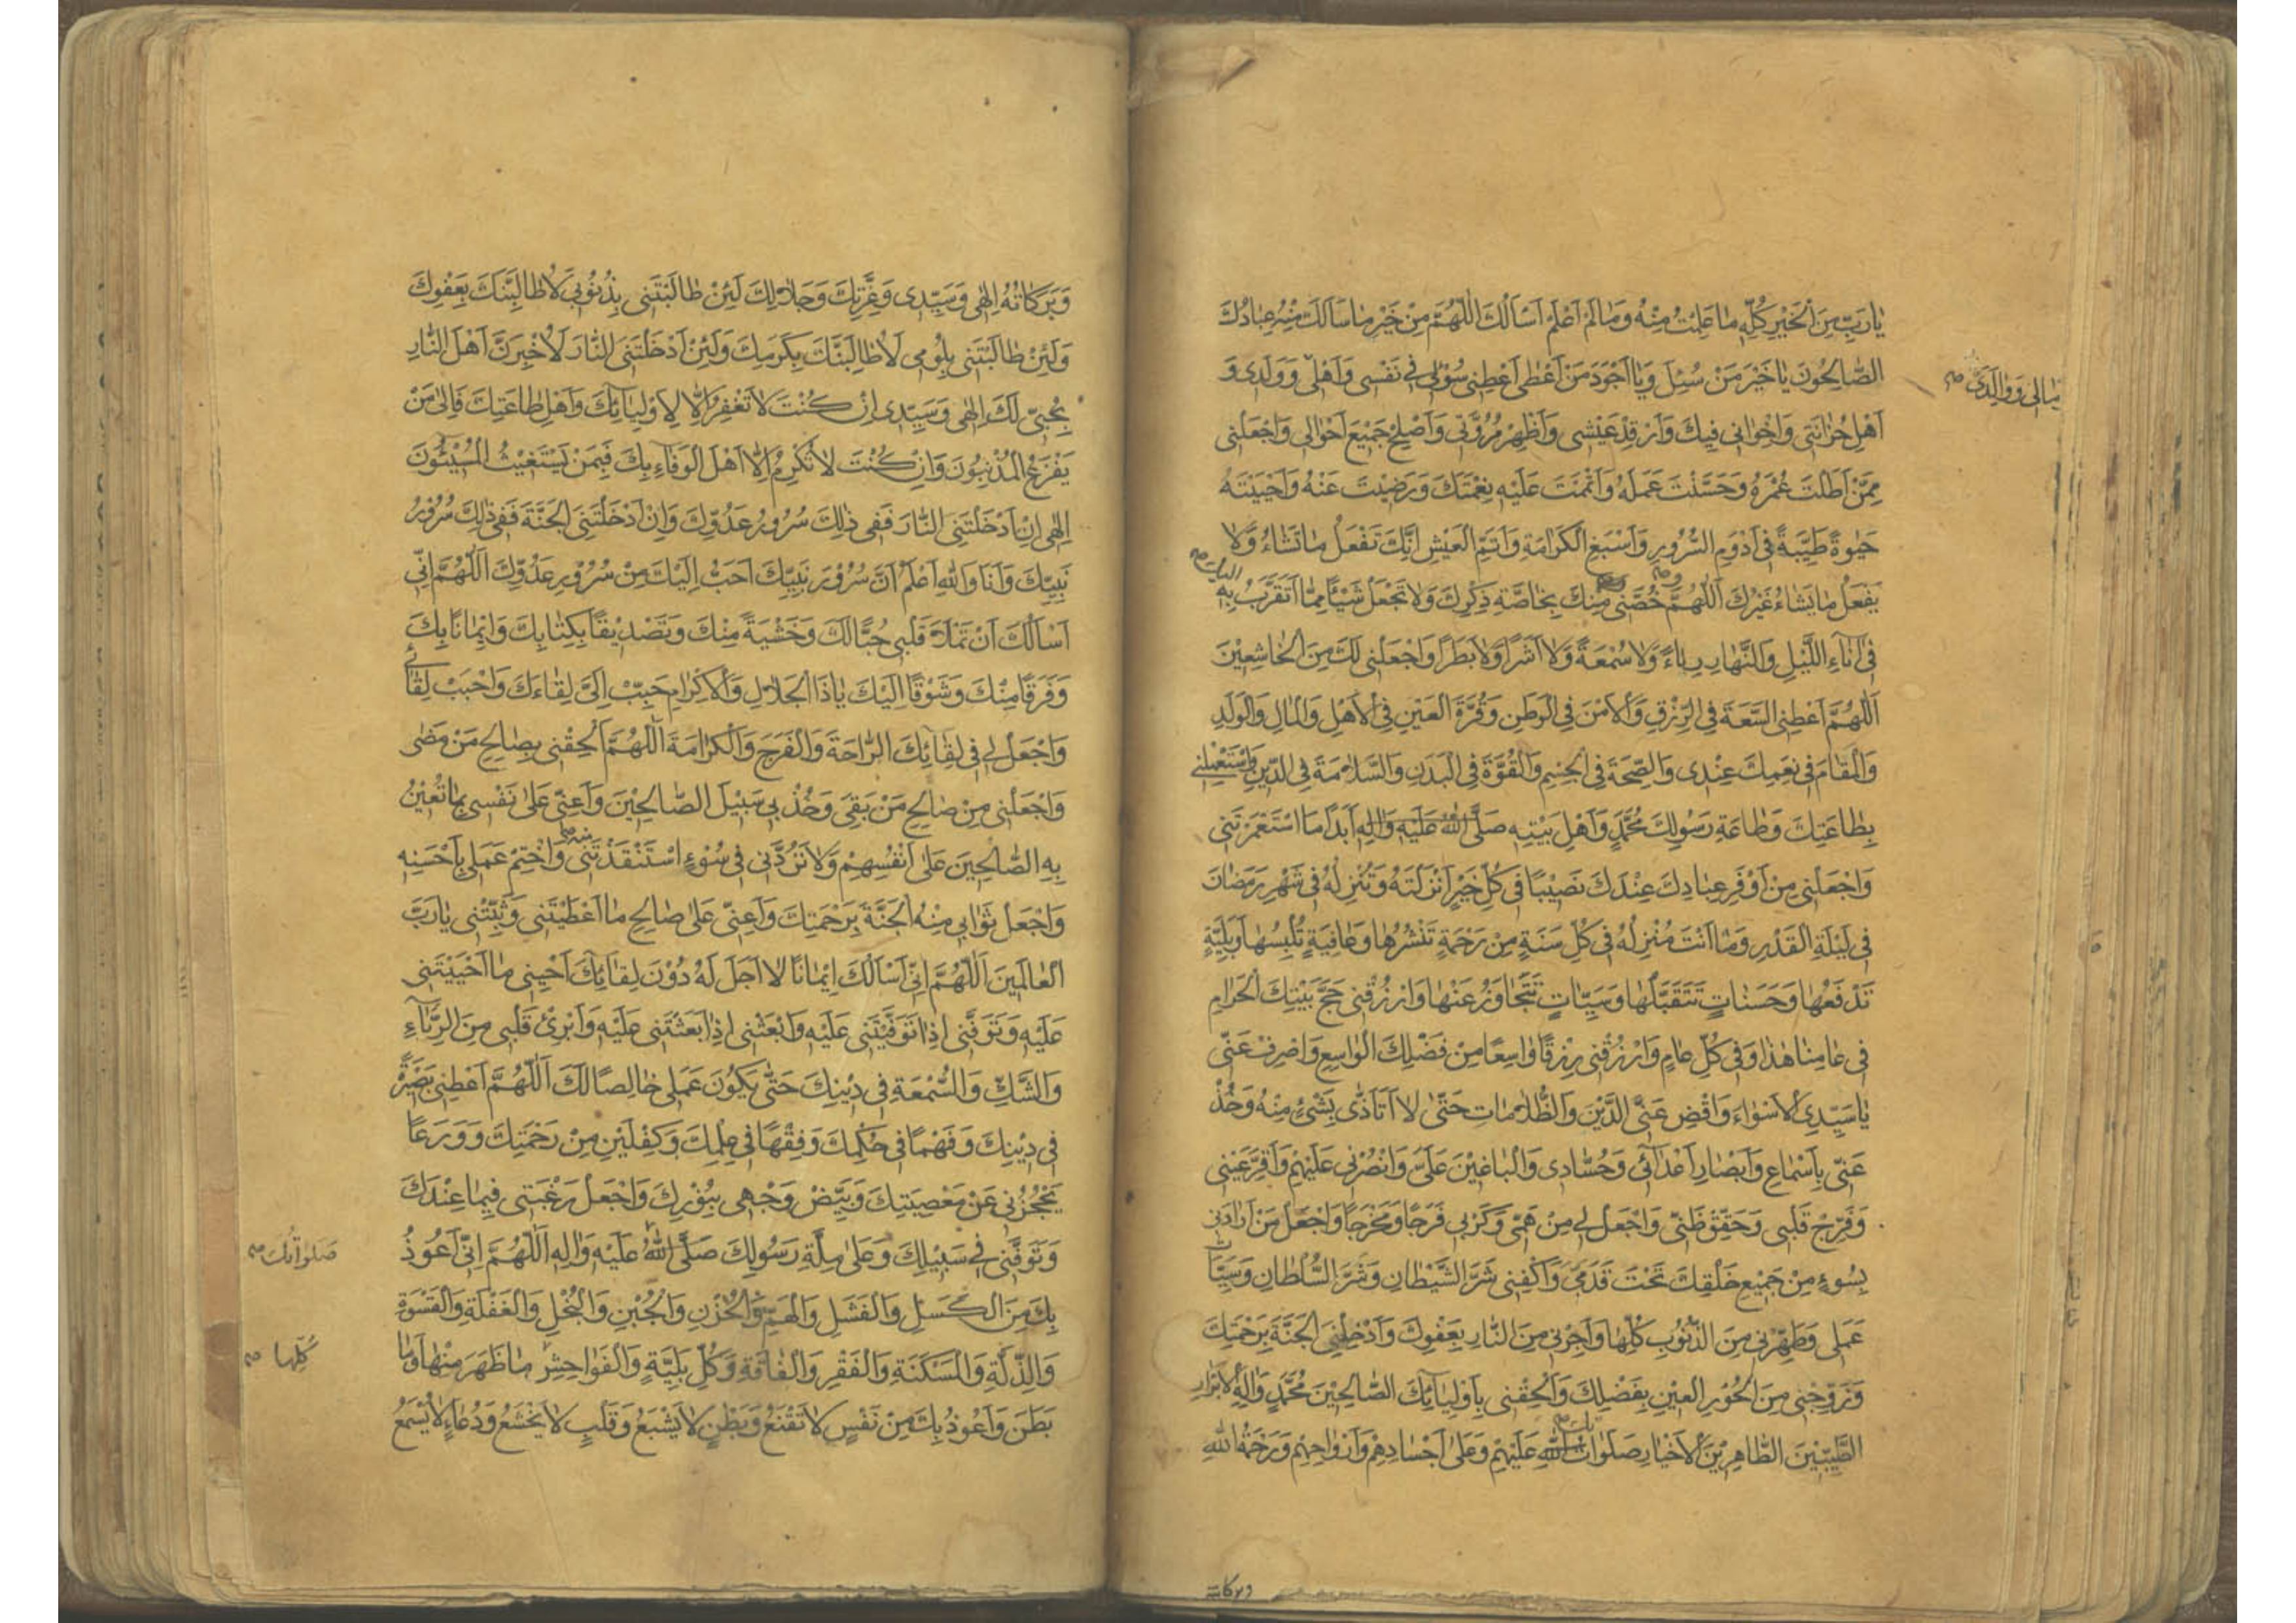 يَا رَبِّ مِنَ الْخَيْرِ كُلِّهِ مَا عَلِمْتُ مِنْهُ وَمَا لَمْ أَعْلَمْ أَسْأَلُكَ اللّٰهُمَّ مِنْ خَيْرِ مَا سَأَلَكَ مِنْهُ عِبَادُكَ
الصَّالِحُونَ يَا خَيْرَ مَنْ سُئِلَ وَيَا أَجْوَدَ مَنْ أَعْطَى أَعْطِنِي سُؤْلِي فِي نَفْسِي وَأَهْلِي وَوَلَدِي وَ
وَوَالِدَيَّ
أَهْلِ حُزَانَتِي وَإِخْوَانِي فِيكَ وَأَرْغِدْ عَيْشِي وَأَظْهِرْ مُرُوَّتِي وَأَصْلِحْ جَمِيعَ أَحْوَالِي وَاجْعَلْنِي
مِمَّنْ أَطَلْتَ عُمْرَهُ وَحَسَّنْتَ عَمَلَهُ وَأَتْمَمْتَ عَلَيْهِ نِعْمَتَكَ وَرَضِيتَ عَنْهُ وَأَحْيَيْتَهُ
حَيٰوةً طَيِّبَةً فِي أَدْوَمِ السُّرُورِ وَأَسْبَغِ الْكَرَامَةِ وَأَتَمِّ الْعَيْشِ إِنَّكَ تَفْعَلُ مَا تَشَاءُ وَلَا
يَفْعَلُ مَا يَشَاءُ غَيْرُكَ اَللّٰهُمَّ خُصَّنِي مِنْكَ بِخَاصَّةِ ذِكْرِكَ وَلَا تَجْعَلْ شَيْئًا مِمَّا أَتَقَرَّبُ بِهِ
فِي آنَاءِ اللَّيْلِ وَالنَّهَارِ رِيَاءً وَلَا سُمْعَةً وَلَا أَشَرًا وَلَا بَطَرًا وَاجْعَلْنِي لَكَ مِنَ الْخَاشِعِيْنَ
اَللّٰهُمَّ أَعْطِنِي السَّعَةَ فِي الرِّزْقِ وَالْأَمْنَ فِي الْوَطَنِ وَقُرَّةَ الْعَيْنِ فِي الْأَهْلِ وَالْمَالِ وَالْوَلَدِ
وَالْمَقَامَ فِي نِعَمِكَ عِنْدِي وَالصِّحَّةَ فِي الْجِسْمِ وَالْقُوَّةَ فِي الْبَدَنِ وَالسَّلَامَةَ فِي الدِّينِ وَاسْتَعْمِلْنِي
بِطَاعَتِكَ وَطَاعَةِ رَسُولِكَ مُحَمَّدٍ وَأَهْلِ بَيْتِهِ صَلَّى اللهُ عَلَيْهِ وَاٰلِهِ أَبَدًا مَا اسْتَعْمَرْتَنِي
وَاجْعَلْنِي مِنْ أَوْفَرِ عِبَادِكَ عِنْدَكَ نَصِيْبًا فِي كُلِّ خَيْرٍ أَنْزَلْتَهُ وَتُنْزِلُهُ فِي شَهْرِ رَمَضَانَ
فِي لَيْلَةِ الْقَدْرِ وَمَا أَنْتَ مُنْزِلُهُ فِي كُلِّ سَنَةٍ مِنْ رَحْمَةٍ تَنْشُرُهَا وَعَافِيَةٍ تُلْبِسُهَا وَبَلِيَّةٍ
تَدْفَعُهَا وَحَسَنَاتٍ تَتَقَبَّلُهَا وَسَيِّئَاتٍ تَتَجَاوَزُ عَنْهَا وَارْزُقْنِي حَجَّ بَيْتِكَ الْحَرَامِ
فِي عَامِنَا هٰذَا وَفِي كُلِّ عَامٍ وَارْزُقْنِي رِزْقًا وَاسِعًا مِنْ فَضْلِكَ الْوَاسِعِ وَاصْرِفْ عَنِّي
يَا سَيِّدِي الْأَسْوَاءَ وَاقْضِ عَنِّي الدَّيْنَ وَالظُّلَامَاتِ حَتّٰى لَا أَتَأَذّٰى بِشَيْءٍ مِنْهُ وَخُذْ
عَنِّي بِأَسْمَاعِ وَأَبْصَارِ أَعْدَائِي وَحُسَّادِي وَالْبَاغِيْنَ عَلَيَّ وَانْصُرْنِي عَلَيْهِمْ وَأَقِرَّ عَيْنِي
وَفَرِّحْ قَلْبِي وَحَقِّقْ ظَنِّي وَاجْعَلْ لِي مِنْ هَمِّي وَكَرْبِي فَرَجًا وَمَخْرَجًا وَاجْعَلْ مَنْ أَرَادَنِي
بِسُوءٍ مِنْ جَمِيْعِ خَلْقِكَ تَحْتَ قَدَمَيَّ وَاكْفِنِي شَرَّ الشَّيْطَانِ وَشَرَّ السُّلْطَانِ وَسَيِّئَاتِ
عَمَلِي وَطَهِّرْنِي مِنَ الذُّنُوبِ كُلِّهَا وَأَجِرْنِي مِنَ النَّارِ بِعَفْوِكَ وَأَدْخِلْنِي الْجَنَّةَ بِرَحْمَتِكَ
وَزَوِّجْنِي مِنَ الْحُوْرِ الْعِيْنِ بِفَضْلِكَ وَأَلْحِقْنِي بِأَوْلِيَائِكَ الصَّالِحِيْنَ مُحَمَّدٍ وَاٰلِهِ الْأَبْرَارِ
الطَّيِّبِيْنَ الطَّاهِرِيْنَ الْأَخْيَارِ صَلَوَاتُ اللهِ عَلَيْهِمْ وَعَلٰى أَجْسَادِهِمْ وَأَرْوَاحِهِمْ وَرَحْمَةُ اللهِ
وبركاته
وَبَرَكَاتُهُ اِلٰهِي وَسَيِّدِي وَعِزَّتِكَ وَجَلَالِكَ لَئِنْ طَالَبْتَنِي بِذُنُوْبِي لَأُطَالِبَنَّكَ بِعَفْوِكَ
وَلَئِنْ طَالَبْتَنِي بِلُؤْمِي لَأُطَالِبَنَّكَ بِكَرَمِكَ وَلَئِنْ أَدْخَلْتَنِي النَّارَ لَأُخْبِرَنَّ أَهْلَ النَّارِ
بِحُبِّي لَكَ اِلٰهِي وَسَيِّدِي إِنْ كُنْتَ لَا تَغْفِرُ إِلَّا لِأَوْلِيَائِكَ وَأَهْلِ طَاعَتِكَ فَإِلٰى مَنْ
يَفْزَعُ الْمُذْنِبُونَ وَإِنْ كُنْتَ لَا تُكْرِمُ إِلَّا أَهْلَ الْوَفَاءِ بِكَ فَبِمَنْ يَسْتَغِيْثُ الْمُسِيْئُونَ
اِلٰهِي إِنْ أَدْخَلْتَنِي النَّارَ فَفِي ذٰلِكَ سُرُورُ عَدُوِّكَ وَإِنْ أَدْخَلْتَنِي الْجَنَّةَ فَفِي ذٰلِكَ سُرُوْرُ
نَبِيِّكَ وَأَنَا وَاللهِ أَعْلَمُ أَنَّ سُرُوْرَ نَبِيِّكَ أَحَبُّ إِلَيْكَ مِنْ سُرُوْرِ عَدُوِّكَ اَللّٰهُمَّ إِنِّي
أَسْأَلُكَ أَنْ تَمْلَأَ قَلْبِي حُبًّا لَكَ وَخَشْيَةً مِنْكَ وَتَصْدِيْقًا بِكِتَابِكَ وَإِيْمَانًا بِكَ
وَفَرَقًا مِنْكَ وَشَوْقًا إِلَيْكَ يَا ذَا الْجَلَالِ وَالْإِكْرَامِ حَبِّبْ إِلَيَّ لِقَاءَكَ وَأَحْبِبْ لِقَائِي
وَاجْعَلْ لِي فِي لِقَائِكَ الرَّاحَةَ وَالْفَرَجَ وَالْكَرَامَةَ اَللّٰهُمَّ أَلْحِقْنِي بِصَالِحِ مَنْ مَضٰى
وَاجْعَلْنِي مِنْ صَالِحِ مَنْ بَقِيَ وَخُذْ بِي سَبِيْلَ الصَّالِحِيْنَ وَأَعِنِّي عَلٰى نَفْسِي بِمَا تُعِيْنُ
بِهِ الصَّالِحِيْنَ عَلٰى أَنْفُسِهِمْ وَلَا تَرُدَّنِي فِي سُوْءٍ اسْتَنْقَذْتَنِي مِنْهُ وَاخْتِمْ عَمَلِي بِأَحْسَنِهِ
وَاجْعَلْ ثَوَابِي مِنْهُ الْجَنَّةَ بِرَحْمَتِكَ وَأَعِنِّي عَلٰى صَالِحِ مَا أَعْطَيْتَنِي وَثَبِّتْنِي يَا رَبَّ
الْعَالَمِيْنَ اَللّٰهُمَّ إِنِّي أَسْأَلُكَ إِيْمَانًا لَا أَجَلَ لَهُ دُوْنَ لِقَائِكَ أَحْيِنِي مَا أَحْيَيْتَنِي
عَلَيْهِ وَتَوَفَّنِي إِذَا تَوَفَّيْتَنِي عَلَيْهِ وَابْعَثْنِي إِذَا بَعَثْتَنِي عَلَيْهِ وَأَبْرِئْ قَلْبِي مِنَ الرِّيَاءِ
وَالشَّكِّ وَالسُّمْعَةِ فِي دِيْنِكَ حَتّٰى يَكُوْنَ عَمَلِي خَالِصًا لَكَ اَللّٰهُمَّ أَعْطِنِي بَصِيْرَةً
فِي دِيْنِكَ وَفَهْمًا فِي حُكْمِكَ وَفِقْهًا فِي عِلْمِكَ وَكِفْلَيْنِ مِنْ رَحْمَتِكَ وَوَرَعًا
يَحْجُزُنِي عَنْ مَعْصِيَتِكَ وَبَيِّضْ وَجْهِي بِنُوْرِكَ وَاجْعَلْ رَغْبَتِي فِيْمَا عِنْدَكَ
وَتَوَفَّنِي فِي سَبِيْلِكَ وَعَلٰى مِلَّةِ رَسُوْلِكَ صَلَّى اللهُ عَلَيْهِ وَاٰلِهِ اَللّٰهُمَّ إِنِّي أَعُوْذُ
صَلَوَاتُكَ
بِكَ مِنَ الْكَسَلِ وَالْفَشَلِ وَالْهَمِّ وَالْحُزْنِ وَالْجُبْنِ وَالْبُخْلِ وَالْغَفْلَةِ وَالْقَسْوَةِ
وَالذِّلَّةِ وَالْمَسْكَنَةِ وَالْفَقْرِ وَالْفَاقَةِ وَكُلِّ بَلِيَّةٍ وَالْفَوَاحِشِ مَا ظَهَرَ مِنْهَا وَمَا
كُلِّهَا
بَطَنَ وَأَعُوْذُ بِكَ مِنْ نَفْسٍ لَا تَقْنَعُ وَبَطْنٍ لَا يَشْبَعُ وَقَلْبٍ لَا يَخْشَعُ وَدُعَاءٍ لَا يُسْمَعُ